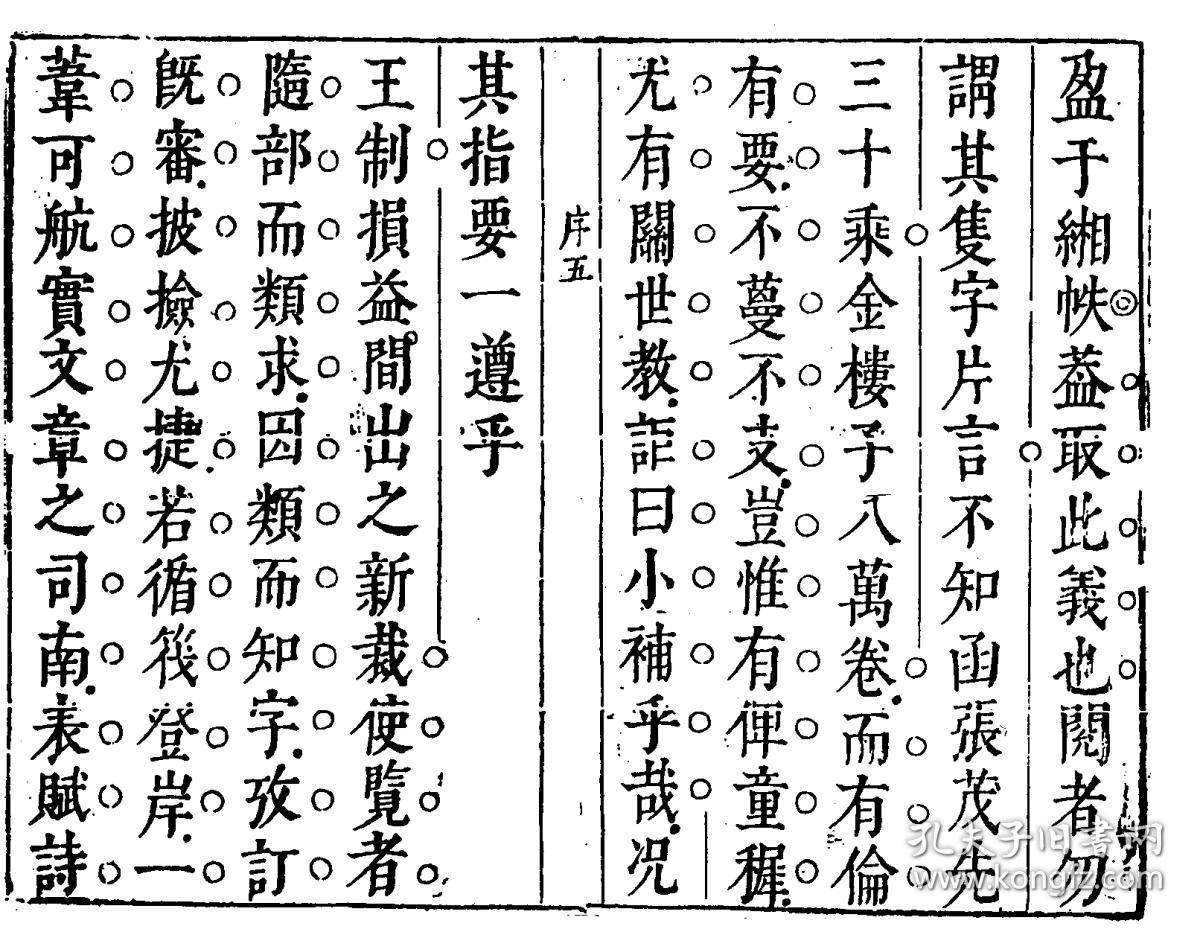 盈于緗帙葢取此義也閱者勿
謂其隻字片言不知函張茂先
三十乘金樓子八萬卷而有倫
有要不蔓不支豈惟有俾童穉
尤有關世教詎曰小補乎哉况
序五
其指要一遵乎
王制損益間出之新裁使覽者
隨部而類求因類而知字攷訂
旣審披撿尤捷若循筏登岸一
葦可航實文章之司南表賦詩
孔夫子旧书网
www.kongfz.com